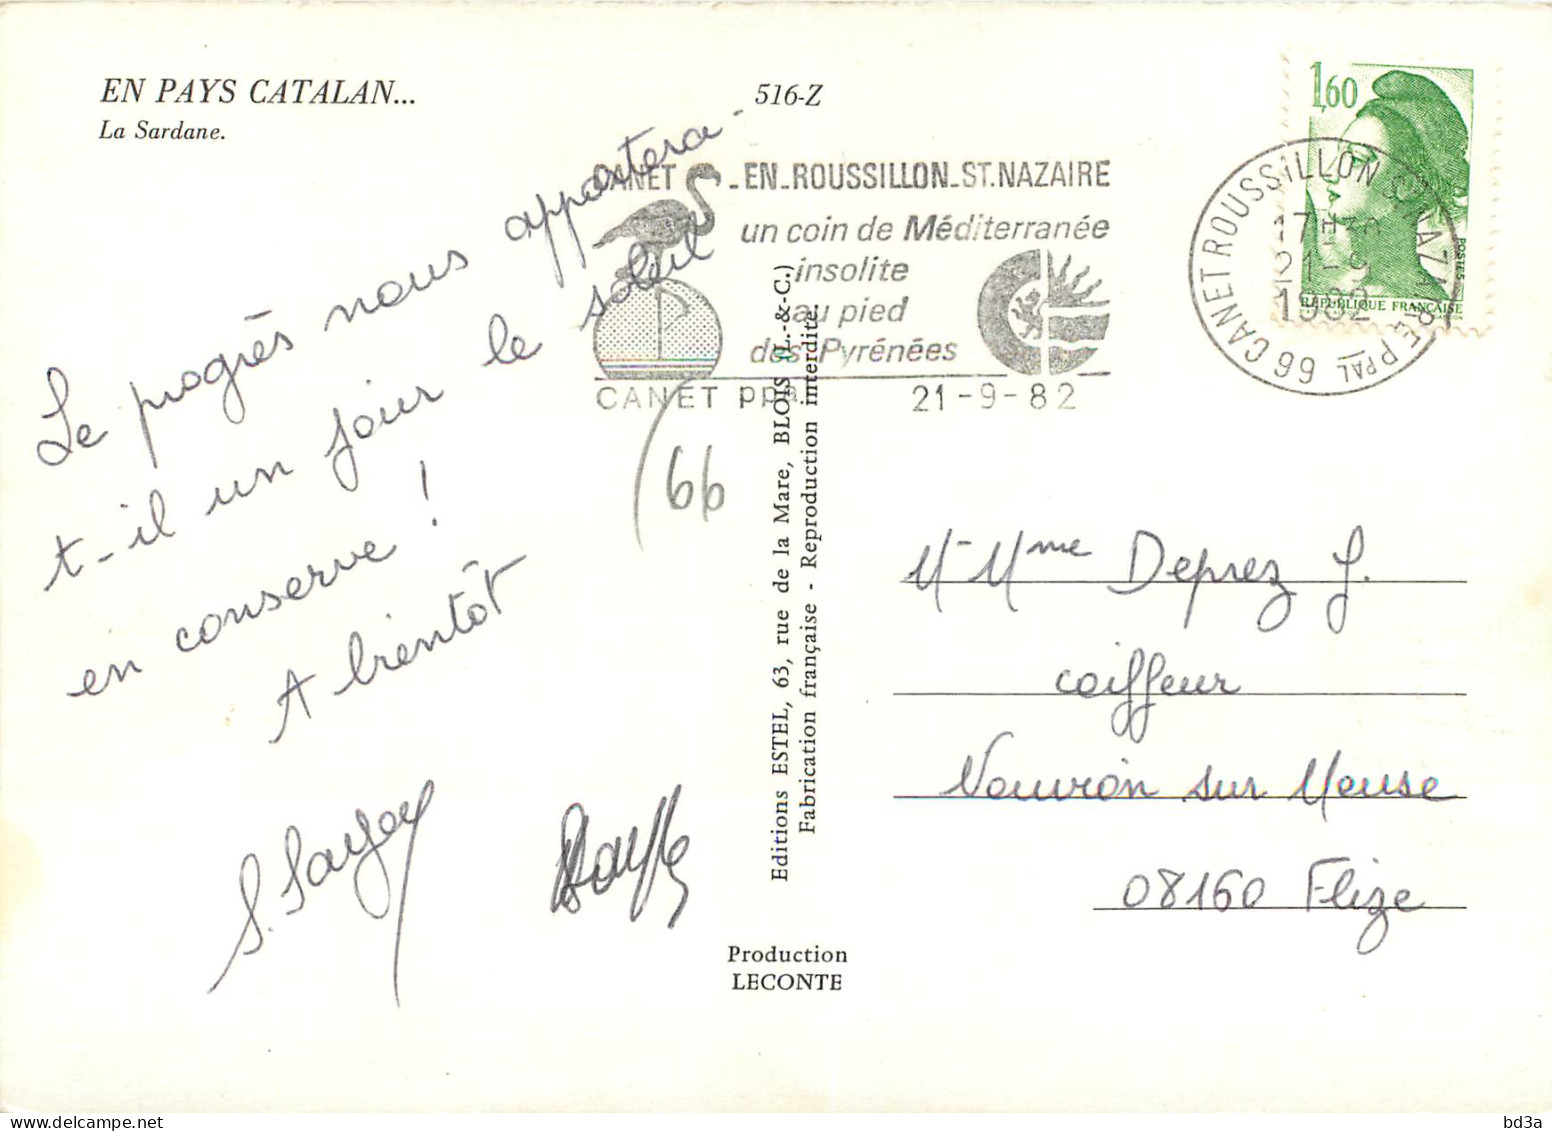 EN PAYS CATALAN...
La Sardane.
516-Z
Le progrès nous apportera-
t-il un jour le soleil
en conserve !
A bientôt
66
CANET_EN_ROUSSILLON_ST.NAZAIRE
un coin de Méditerranée
insolite
au pied
des Pyrénées
CANET ppal 21-9-82
1,60
POSTES
RÉPUBLIQUE FRANÇAISE
66 CANET ROUSSILLON S NAZAIRE PPAL
17H30
21-9
1982
Editions ESTEL, 63, rue de la Mare, BLOIS (L.-&-C.)
Fabrication française - Reproduction interdite.
M-Mme Deprez J.
coiffeur
Nouvion sur Meuse
08160 Flize
Production
LECONTE
bd3a